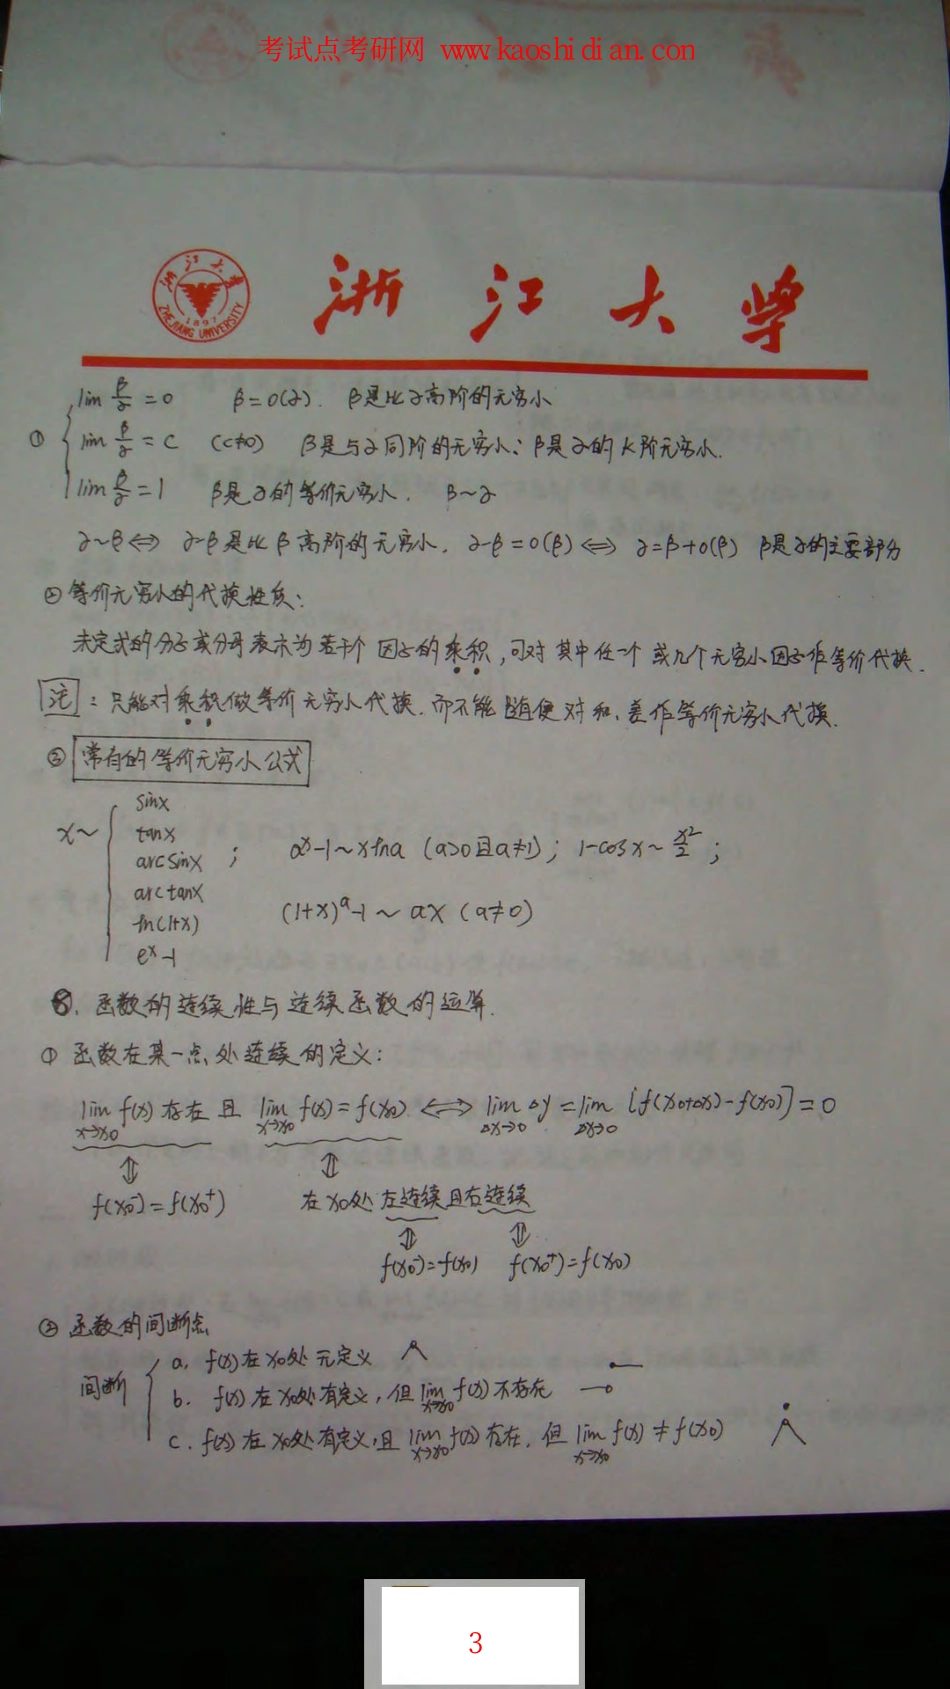 考试点考研网 www.kaoshidian.com
浙江大学
浙江大学
ZHEJIANG UNIVERSITY
1897
① lim β/α = 0 β=o(α). β是比α高阶的无穷小
lim β/α = C (C≠0) β是与α同阶的无穷小; β是α的k阶无穷小.
lim β/α = 1 β是α的等价无穷小. β~α
α~β ⟺ α-β是比β高阶的无穷小. α-β=o(β) ⟺ α=β+o(β) β是α的主要部分
② 等价无穷小的代换性质:
未定式的分子或分母表示为若干个因子的乘积,可对其中任一个或几个无穷小因子作等价代换.
注: 只能对乘积做等价无穷小代换.而不能随便对和、差作等价无穷小代换.
③ 常有的等价无穷小公式
x~ { sinx
tanx
arcsinx ; aˣ-1~xlna (a>0且a≠1); 1-cosx~x²/2 ;
arctanx
ln(1+x) (1+x)ᵃ-1 ~ ax (a≠0)
eˣ-1
8. 函数的连续性与连续函数的运算.
① 函数在某一点处连续的定义:
lim x→x₀ f(x) 存在 且 lim x→x₀ f(x)=f(x₀) ⟺ lim Δx→0 Δy = lim Δx→0 [f(x₀+Δx)-f(x₀)]=0
⇕ ⇕
f(x₀⁻)=f(x₀⁺) 在x₀处左连续且右连续
⇕ ⇕
f(x₀⁻)=f(x₀) f(x₀⁺)=f(x₀)
② 函数的间断点
间断 { a. f(x)在x₀处无定义
b. f(x)在x₀处有定义, 但 lim x→x₀ f(x)不存在
c. f(x)在x₀处有定义,且 lim x→x₀ f(x)存在, 但 lim x→x₀ f(x)≠f(x₀)
3